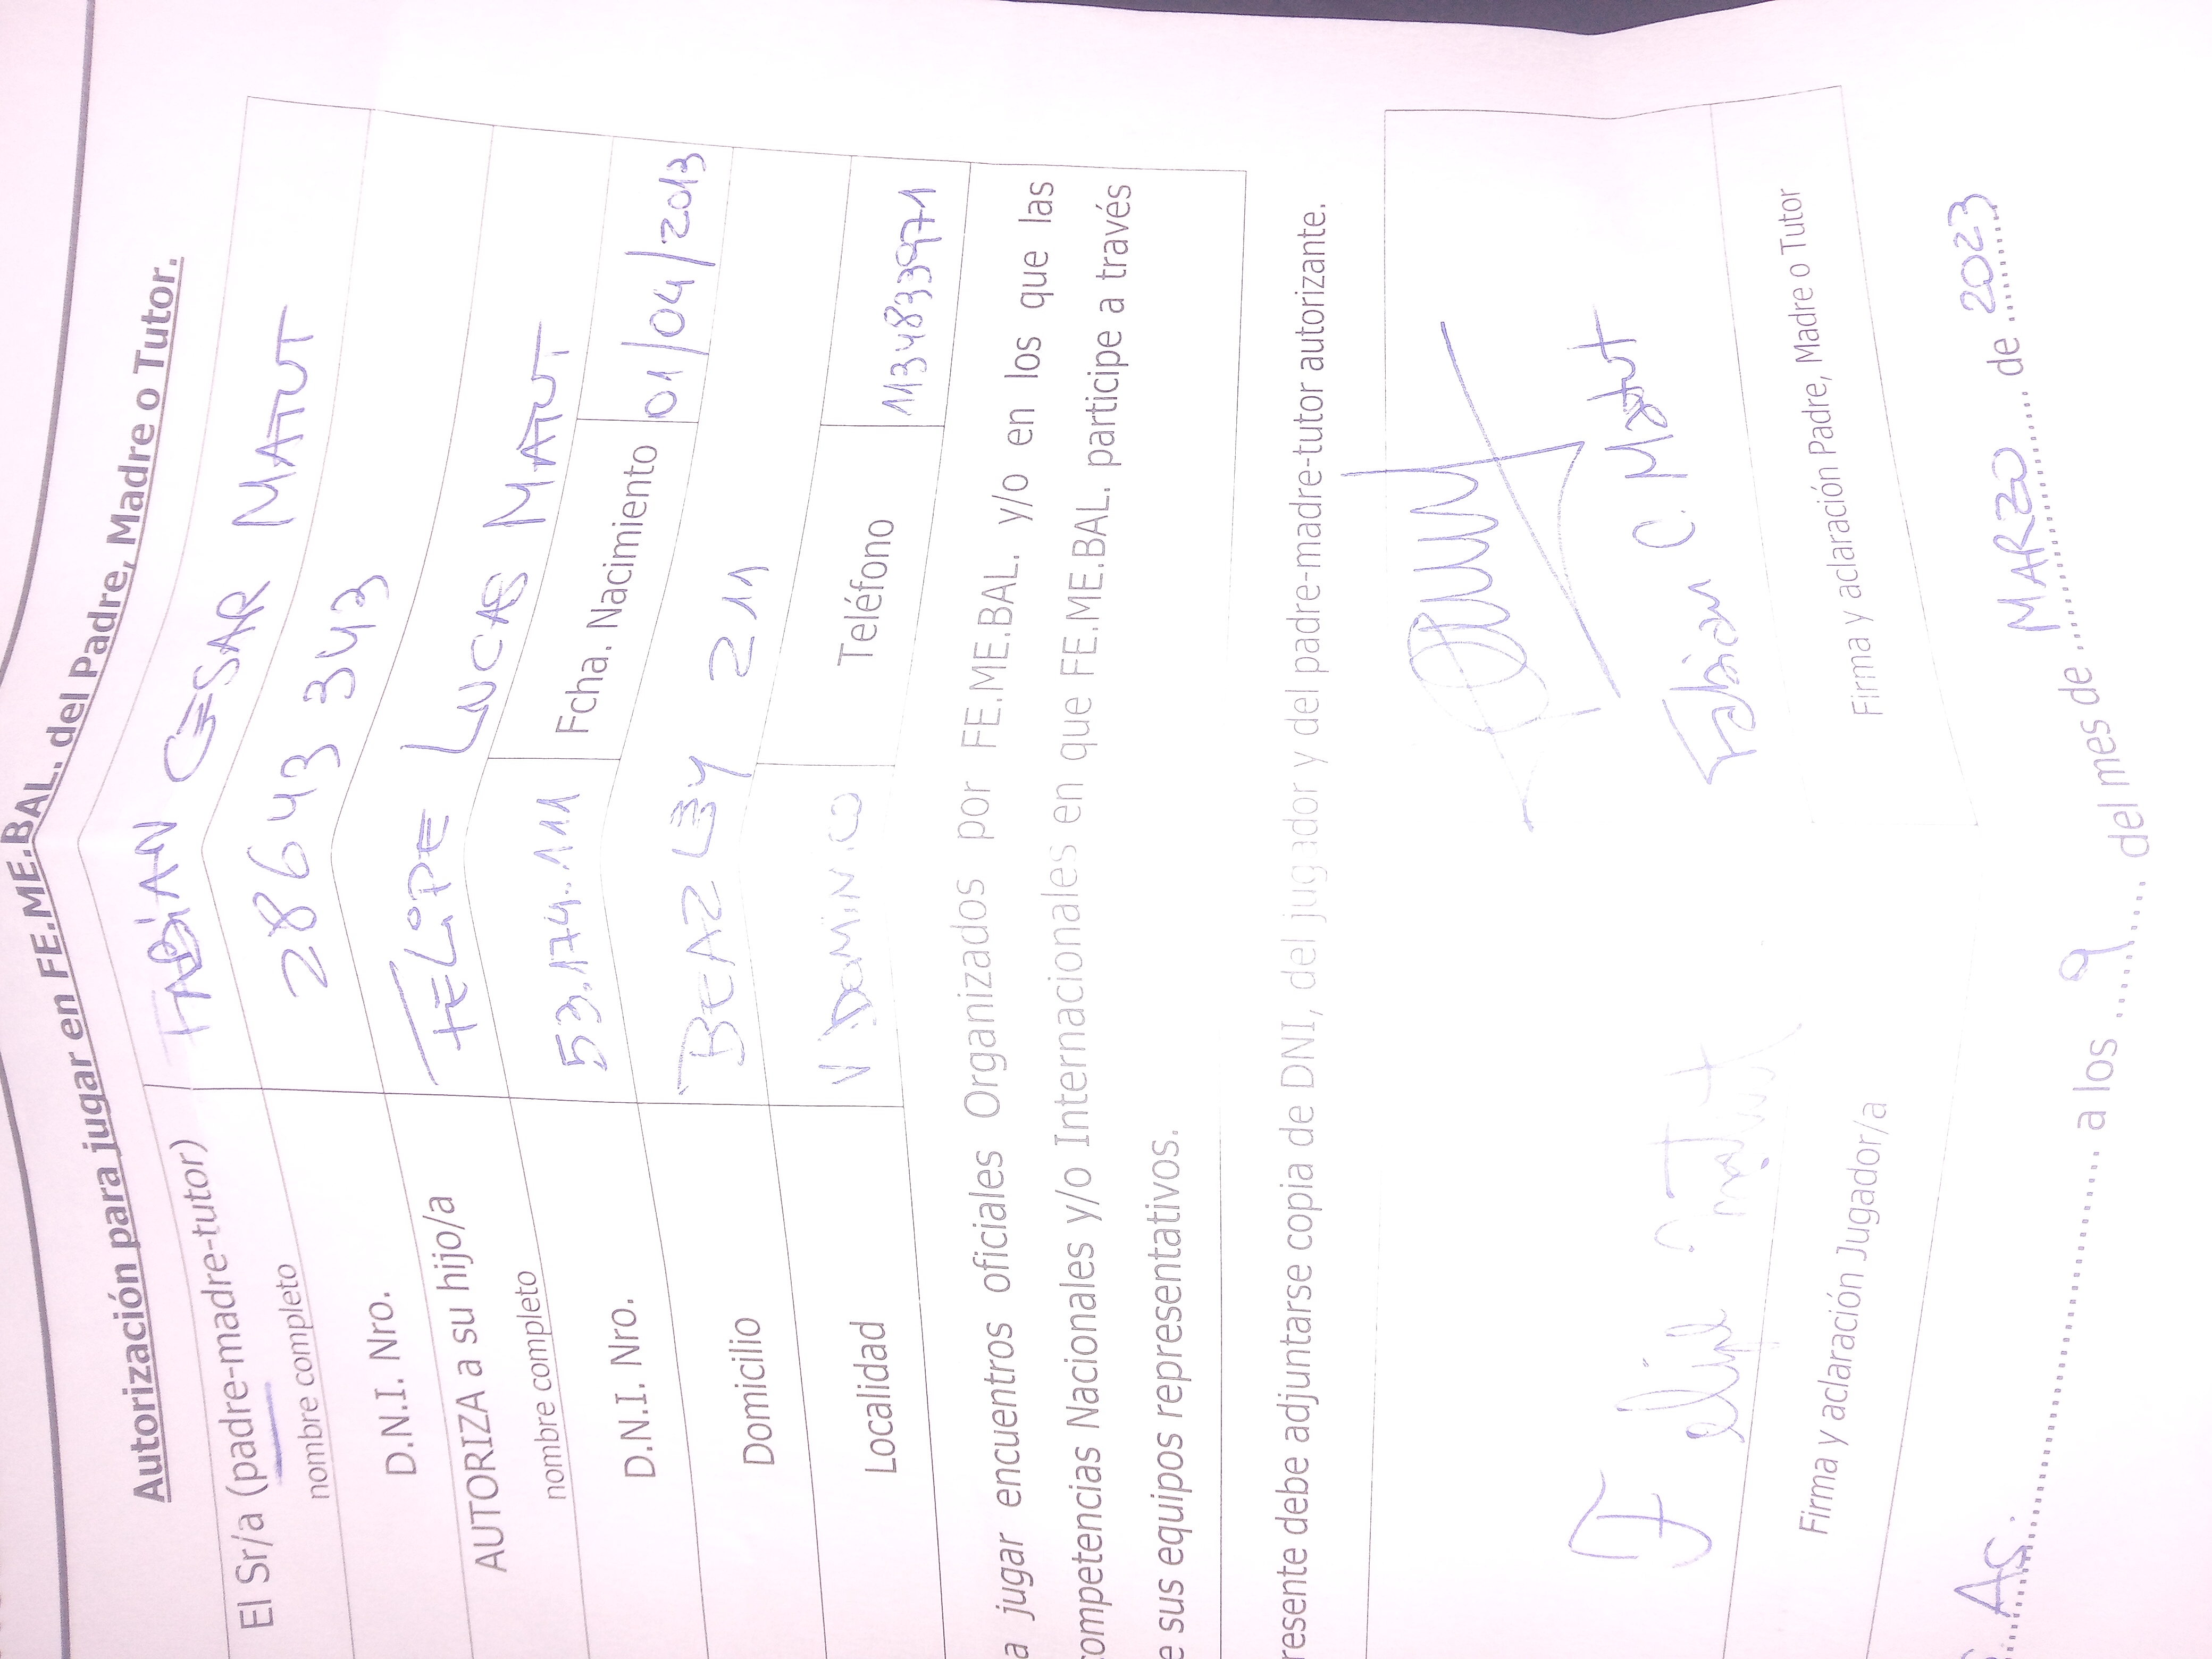 Autorización para jugar en FE.ME.BAL. del Padre, Madre o Tutor.
El Sr/a (padre-madre-tutor) nombre completo FABIAN CESAR MATUT
D.N.I. Nro. 28643 343
AUTORIZA a su hijo/a nombre completo FELIPE LUCAS MATUT
D.N.I. Nro. 53.174.111 Fcha. Nacimiento 01/04/2013
Domicilio BEAZLEY 211
Localidad V DOMINICO Teléfono
a jugar encuentros oficiales Organizados por FE.ME.BAL. y/o en los que las
competencias Nacionales y/o Internacionales en que FE.ME.BAL. participe a través
e sus equipos representativos.
resente debe adjuntarse copia de DNI, del jugador y del padre-madre-tutor autorizante.
Felipe matut
Fabian C. Matut
Firma y aclaración Jugador/a Firma y aclaración Padre, Madre o Tutor
AS. a los 9 del mes de MARZO de 2023